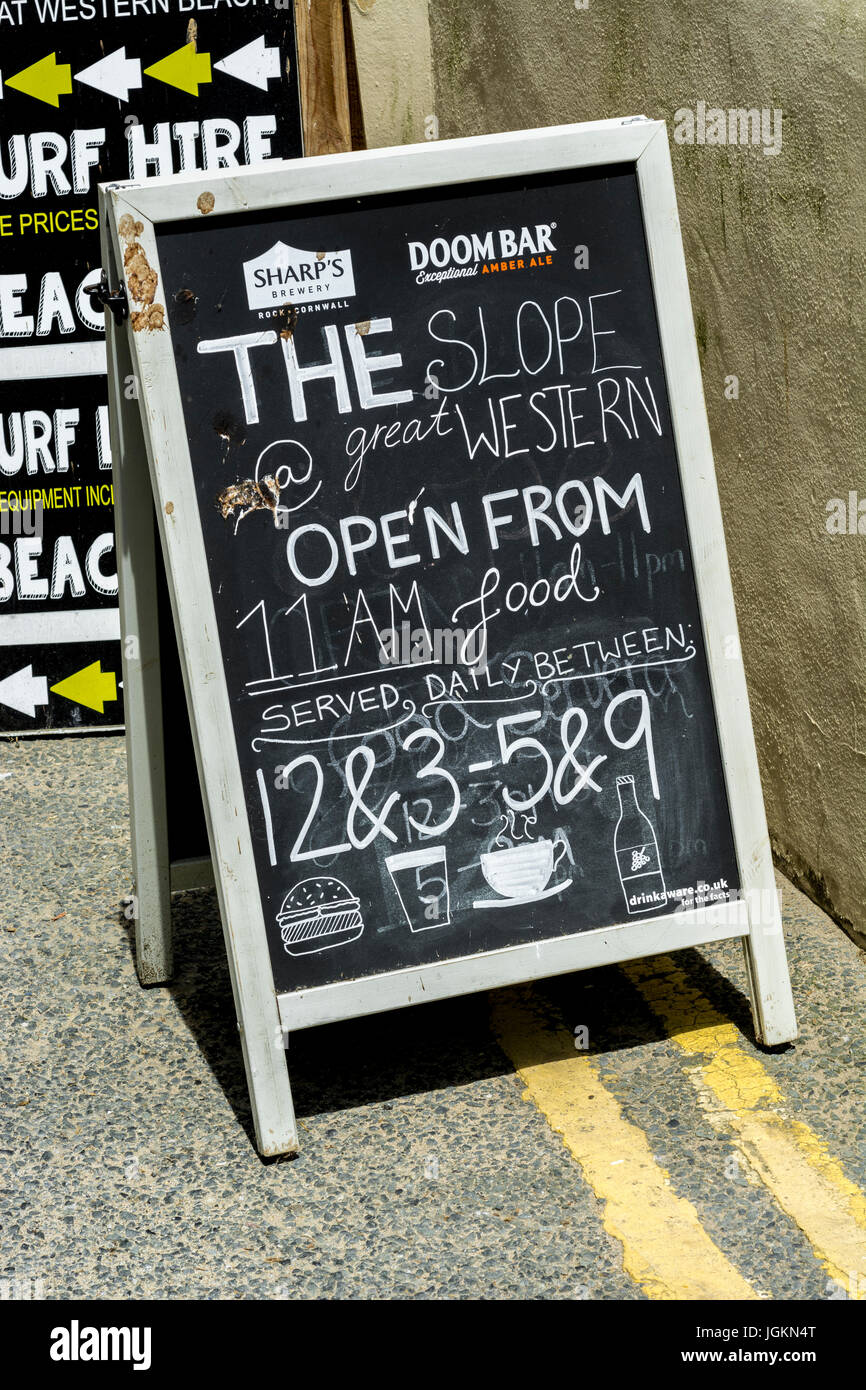 AT WESTERN BEACH
URF HIRE
E PRICES
BEAC
URF L
EQUIPMENT INCL
BEAC
SHARP'S
BREWERY
ROCK CORNWALL
DOOM BAR®
Exceptional AMBER ALE
THE SLOPE
@ great WESTERN
OPEN FROM
11AM food
SERVED, DAILY BETWEEN:
12&3-5&9
drinkaware.co.uk
for the facts
alamy stock photo
JGKN4T
www.alamy.com